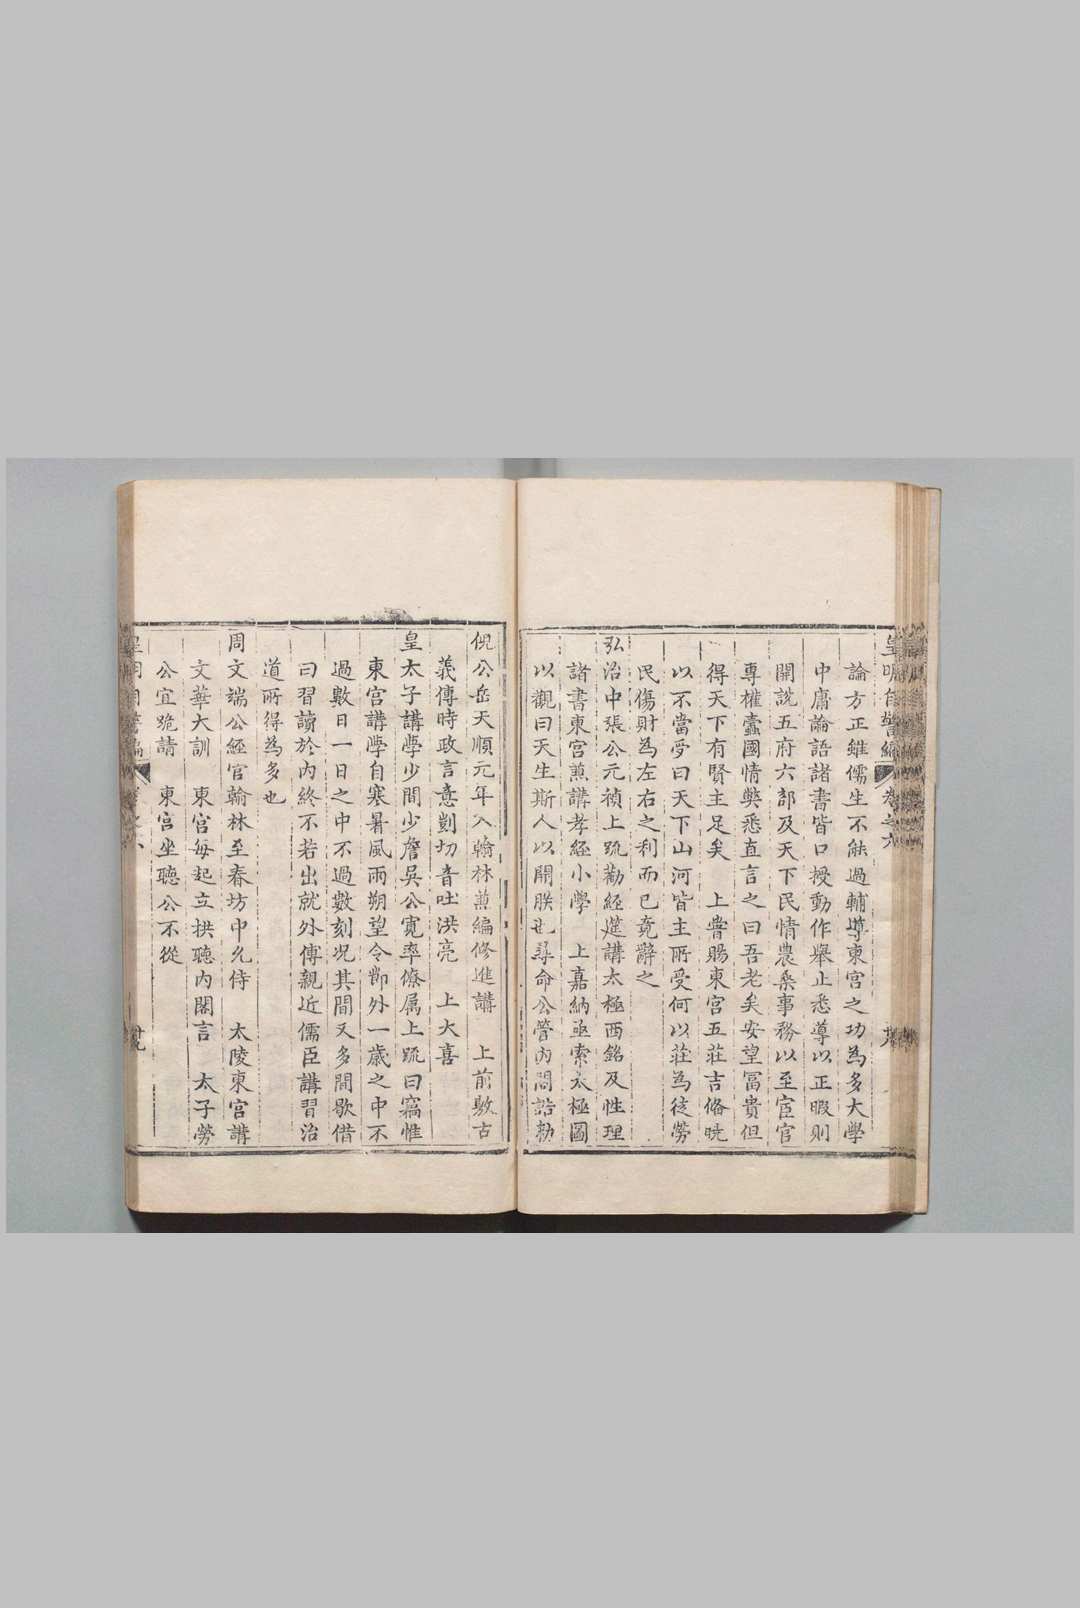 皇明自警編 卷之六
論方正雖儒生不能過輔導東宮之功為多大學
中庸論語諸書皆口授動作舉止悉導以正暇則
開說五府六部及天下民情農桑事務以至宦官
專權蠹國情弊悉直言之曰吾老矣安望富貴但
得天下有賢主足矣 上嘗賜東宮五莊吉脩曉
以不當受曰天下山河皆主所受何以莊為徒勞
民傷財為左右之利而已竟辭之
弘治中張公元禎上疏勸經筵講太極西銘及性理
諸書東宮兼講孝經小學 上嘉納亟索太極圖
以觀曰天生斯人以開朕也尋命公管內閣誥勑
倪公岳天順元年入翰林兼編修進講 上前敷古
義傳時政言意剴切音吐洪亮 上大喜
皇太子講學少間少詹吳公寬率僚属上疏曰竊惟
東宮講學自寒暑風雨朔望令節外一歲之中不
過數日一日之中不過數刻况其間又多間歇借
曰習讀於內終不若出就外傅親近儒臣講習治
道所得為多也
周文端公經官翰林至春坊中允侍 太陵東宮講
文華大訓 東宮每起立拱聽內閣言 太子勞
公宜跪請 東宮坐聽公不從